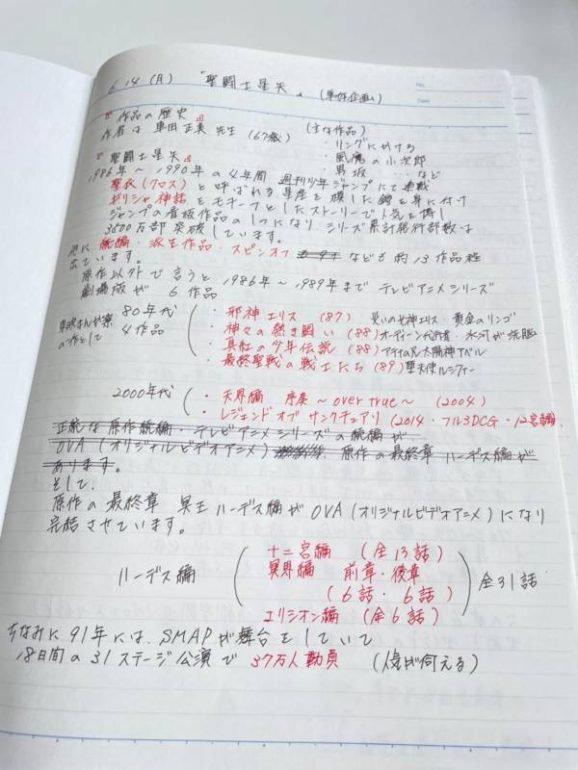 6/14(月) 『聖闘士星矢』(単体企画)
『作品の歴史』
作者は車田正美先生(67歳) (主な作品)
・リングにかける
・風魔の小次郎
・男坂 …など
『聖闘士星矢』
1986年~1990年の4年間 週刊少年ジャンプにて連載
聖衣(クロス)と呼ばれる星座を模した鎧を身に付け
ギリシャ神話をモチーフとしたストーリーで人気を博し
ジャンプの看板作品の1つになり シリーズ累計発行部数は
3500万部突破しています。
更に続編・派生作品・スピンオフ なども約13作品程
出ています。
原作以外で言うと、1986年~1989年までテレビアニメシリーズ
劇場版が 6作品
80年代
4作品
・邪神エリス (87) 災いの女神エリス・黄金のリンゴ
・神々の熱き戦い (88) オーディーン代行者・氷河が洗脳
・真紅の少年伝説 (88) アテナの兄太陽神アベル
・最終聖戦の戦士たち (89) 堕天使ルシファー
2000年代
・天界編 序奏~overture~ (2004)
・レジェンド オブ サンクチュアリ (2014・フル3DCG・12宮編)
正統な原作続編・テレビアニメシリーズの続編が
OVA(オリジナルビデオアニメ) 原作の最終章 ハーデス編が
あります。
そして、
原作の最終章 冥王ハーデス編がOVA(オリジナルビデオアニメ)になり
完結させています。
ハーデス編
十二宮編 (全13話)
冥界編 前章・後章
(6話・6話)
エリシオン編 (全6話)
全31話
ちなみに91年には、SMAPが舞台をしていて
18日間の31ステージ公演で 37万人動員 (人気が伺える)